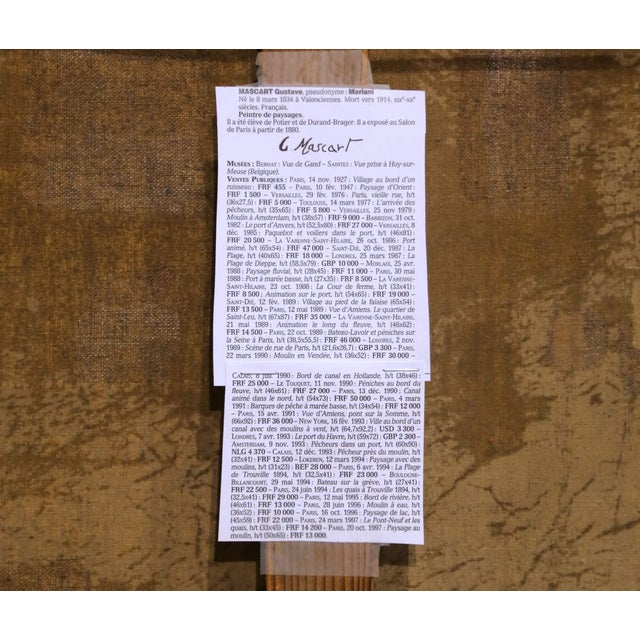 MASCART Gustave, pseudonyme : Mariani
Né le 8 mars 1834 à Valenciennes. Mort vers 1914. XIXe-XXe
siècles. Français.
Peintre de paysages.
Il a été élève de Potier et de Durand-Brager. Il a exposé au Salon
de Paris à partir de 1880.
G Mascart
MUSÉES : BERNAY : Vue de Gand – SAINTES : Vue prise à Huy-sur-
Meuse (Belgique).
VENTES PUBLIQUES : PARIS, 14 nov. 1927 : Village au bord d'un
ruisseau : FRF 455 – PARIS, 10 fév. 1947 : Paysage d'Orient :
FRF 1 500 – VERSAILLES, 29 fév. 1976 : Paris, vieille rue, h/t
(36x27,5) : FRF 5 000 – TOULOUSE, 14 mars 1977 : L'arrivée des
pêcheurs, h/t (35x65) : FRF 5 800 – VERSAILLES, 25 nov 1979 :
Moulin à Amsterdam, h/t (38x57) : FRF 9 000 – BARBIZON, 31 oct.
1982 : Le port d'Anvers, h/t (52,5x80) : FRF 27 000 – VERSAILLES, 8
déc. 1985 : Paquebot et voiliers dans le port, h/t (46x81) :
FRF 20 500 – LA VARENNE-SAINT-HILAIRE, 26 oct. 1986 : Port
animé, h/t (65x54) : FRF 47 000 – SAINT-DIÉ, 20 déc. 1987 : La
Plage, h/t (40x65) : FRF 18 000 – LONDRES, 25 mars 1987 : La
Plage de Dieppe, h/t (58,5x79) : GBP 10 000 – MORLAIX, 25 avr.
1988 : Paysage fluvial, h/t (28x45) : FRF 11 000 – PARIS, 30 mai
1988 : Port à marée basse, h/t (27x35) : FRF 8 500 – LA VARENNE-
SAINT-HILAIRE, 23 oct. 1988 : La Cour de ferme, h/t (33x41) :
FRF 8 500 ; Animation sur le port, h/t (54x65) : FRF 19 000 –
SAINT-DIÉ, 12 fév. 1989 : Village au pied de la falaise (65x54) :
FRF 13 500 – PARIS, 12 mai 1989 : Vue d'Amiens. Le quartier de
Saint-Leu, h/t (67x87) : FRF 35 000 – LA VARENNE-SAINT-HILAIRE,
21 mai 1989 : Animation le long du fleuve, h/t (46x62) :
FRF 14 500 – PARIS, 22 oct. 1989 : Bateau-Lavoir et péniches sur
la Seine à Paris, h/t (38,5x55,5) : FRF 46 000 – LONDRES, 2 nov.
1989 : Scène de rue de Paris, h/t (21,6x26,7) : GBP 3 300 – PARIS,
22 mars 1990 : Moulin en Vendée, h/t (36x52) : FRF 30 000 –
CALAIS, 8 juil. 1990 : Bord de canal en Hollande, h/t (38x46) :
FRF 25 000 – LE TOUQUET, 11 nov. 1990 : Péniches au bord du
fleuve, h/t (46x61) : FRF 27 000 – PARIS, 13 déc. 1990 : Canal
animé dans le nord, h/t (54x73) : FRF 50 000 – PARIS, 4 mars
1991 : Barques de pêche à marée basse, h/t (34x54) : FRF 12 000
– PARIS, 15 avr. 1991 : Vue d'Amiens, pont sur la Somme, h/t
(66x92) : FRF 36 000 – NEW YORK, 16 fév. 1993 : Ville au bord d'un
canal avec des moulins à vent, h/t (64,7x92,2) : USD 3 300 –
LONDRES, 7 avr. 1993 : Le port du Havre, h/t (59x72) : GBP 2 300 –
AMSTERDAM, 9 nov. 1993 : Pêcheurs dans un port, h/t (60x90) :
NLG 4 370 – CALAIS, 12 déc. 1993 : Pêcheur près du moulin, h/t
(32x41) : FRF 12 500 – LOKEREN, 12 mars 1994 : Paysage avec des
moulins, h/t (31x23) : BEF 28 000 – PARIS, 6 avr. 1994 : La Plage
de Trouville 1894, h/t (32,5x41) : FRF 23 000 – BOULOGNE-
BILLANCOURT, 29 mai 1994 : Bateau sur la grève, h/t (27x41) :
FRF 22 500 – PARIS, 24 juin 1994 : Les quais à Trouville 1894, h/t
(32,5x41) : FRF 29 000 – PARIS, 12 mai 1995 : Bord de rivière, h/t
(46x61) : FRF 13 000 – PARIS, 28 juin 1996 : Moulin à eau, h/t
(36x52) : FRF 10 000 – PARIS, 16 oct. 1996 : Paysage de lac, h/t
(45x59) : FRF 22 000 – PARIS, 24 mars 1997 : Le Pont-Neuf et les
quais, h/t (33x45) : FRF 14 200 – PARIS, 20 oct. 1997 : Paysage au
moulin, h/t (50x65) : FRF 13 000.